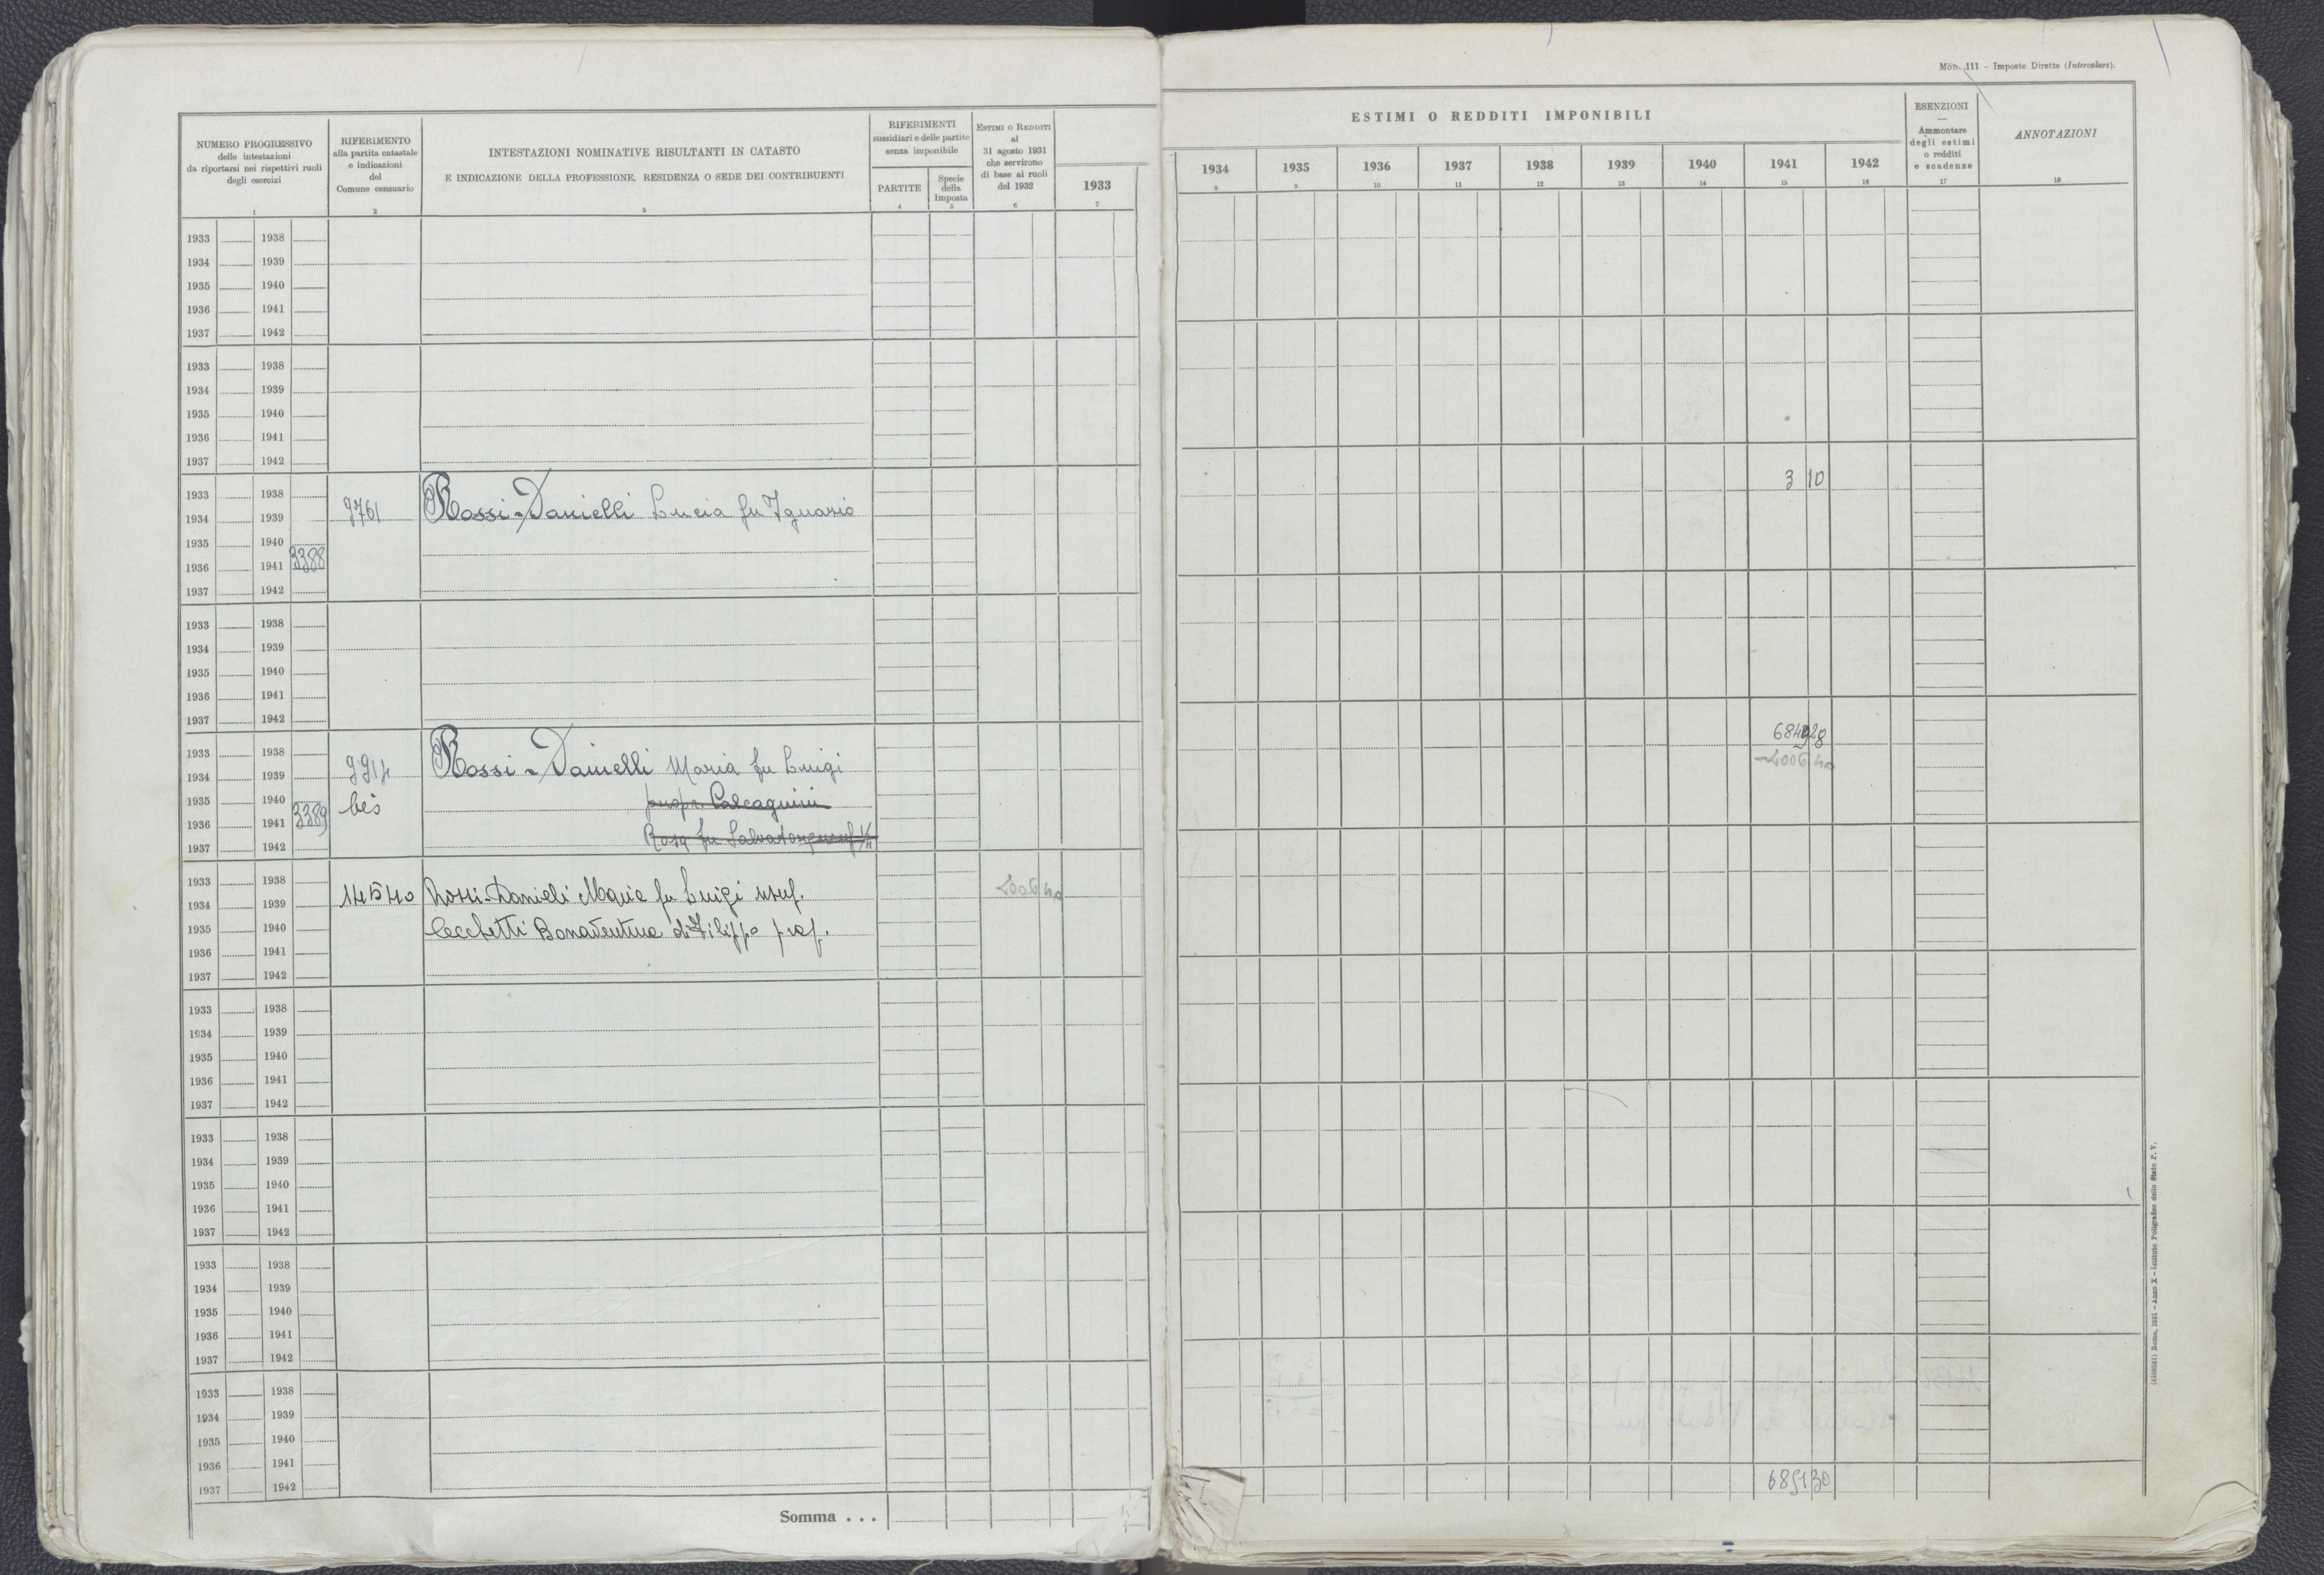 Mod. 111 – Imposte Dirette (Intercalare).
NUMERO PROGRESSIVO
delle intestazioni
da riportarsi nei rispettivi ruoli
degli esercizi
1
RIFERIMENTO
alla partita catastale
e indicazioni
del
Comune censuario
2
INTESTAZIONI NOMINATIVE RISULTANTI IN CATASTO
E INDICAZIONE DELLA PROFESSIONE, RESIDENZA O SEDE DEI CONTRIBUENTI
3
RIFERIMENTI
sussidiari e delle partite
senza imponibile
PARTITE
4
Specie
della
Imposta
5
ESTIMI O REDDITI
al
31 agosto 1931
che servirono
di base ai ruoli
del 1932
6
ESTIMI O REDDITI IMPONIBILI
1933 1934 1935 1936 1937 1938 1939 1940 1941 1942
7 8 9 10 11 12 13 14 15 16
ESENZIONI
—
Ammontare
degli estimi
o redditi
e scadenze
17
ANNOTAZIONI
18
1933 1938
1934 1939
1935 1940
1936 1941
1937 1942
1933 1938
1934 1939
1935 1940
1936 1941
1937 1942
1933 1938 3 10
1934 1939 9761 Rossi-Danielli Lucia fu Ignazio
1935 1940
1936 1941 3388
1937 1942
1933 1938
1934 1939
1935 1940
1936 1941
1937 1942
1933 1938
1934 1939 9914 Rossi-Danielli Maria fu Luigi 2006 40
1935 1940 bis Calcagnini
1936 1941 3389
1937 1942 Rosa fu Salvatore usuf 1/4
1933 1938
1934 1939 14540 Rossi-Danieli Maria fu Luigi usuf. 2006 40
1935 1940 Cecchetti Bonaventura di Filippo prop.
1936 1941
1937 1942
1933 1938
1934 1939
1935 1940
1936 1941
1937 1942
1933 1938
1934 1939
1935 1940
1936 1941
1937 1942
1933 1938
1934 1939
1935 1940
1936 1941
1937 1942
1933 1938
1934 1939
1935 1940
1936 1941
1937 1942
Somma . . . 6851 30
Roma, 1931 – Anno X – Istituto Poligrafico dello Stato P. V.